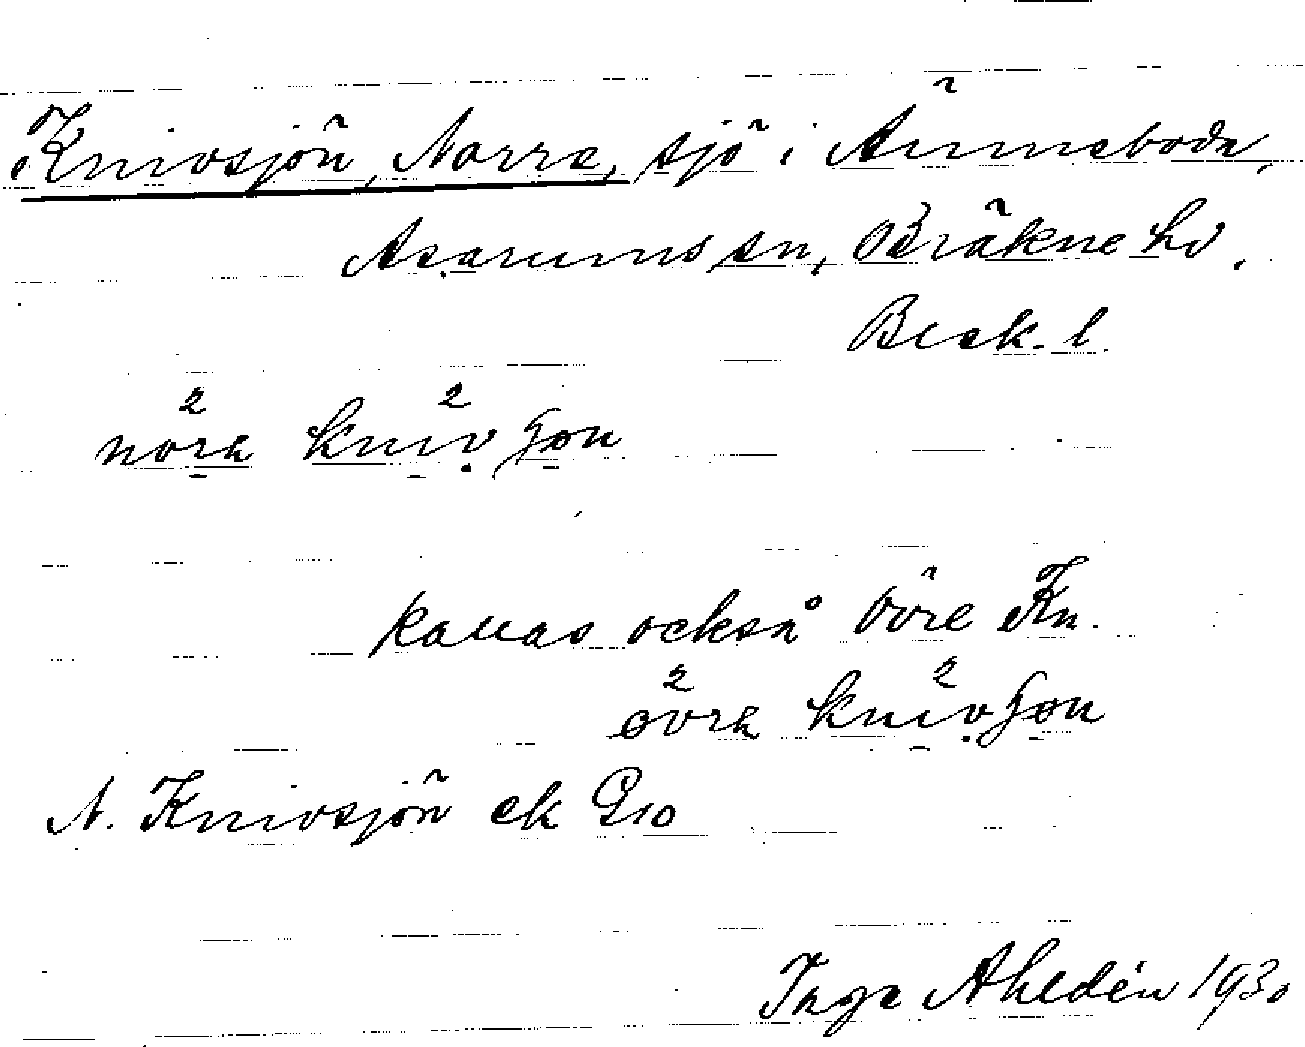 Knivsjön, Norra, sjö i Änneboda,
Asarums sn, Bräkne hd.
Blek. l.
nöra knivʃøn
kallas också Övre Kn.
øvra knivʃøn
N. Knivsjön ek G10
Inga Ahldén 1930